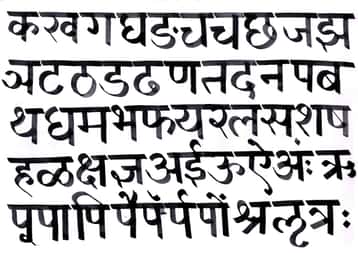 क ख ग घ ङ च च छ ज झ
ञ ट ठ ड ढ ण त द न प ब
थ ध म भ फ य र ल स श ष
ह ळ क्ष ज्ञ अ ई ऊ ऐ अंः ऋ
पू पा पि पै पं र्प पों श्र लृ त्र ः